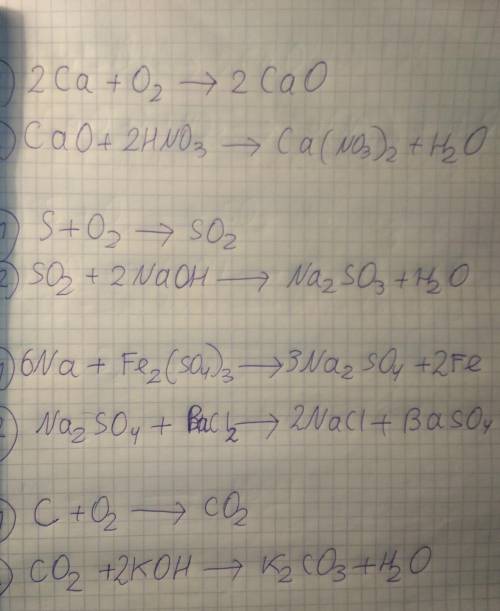 1) 2Ca + O₂ → 2CaO
2) CaO + 2HNO₃ → Ca(NO₃)₂ + H₂O
1) S + O₂ → SO₂
2) SO₂ + 2NaOH → Na₂SO₃ + H₂O
1) 6Na + Fe₂(SO₄)₃ → 3Na₂SO₄ + 2Fe
2) Na₂SO₄ + BaCl₂ → 2NaCl + BaSO₄
1) C + O₂ → CO₂
2) CO₂ + 2KOH → K₂CO₃ + H₂O